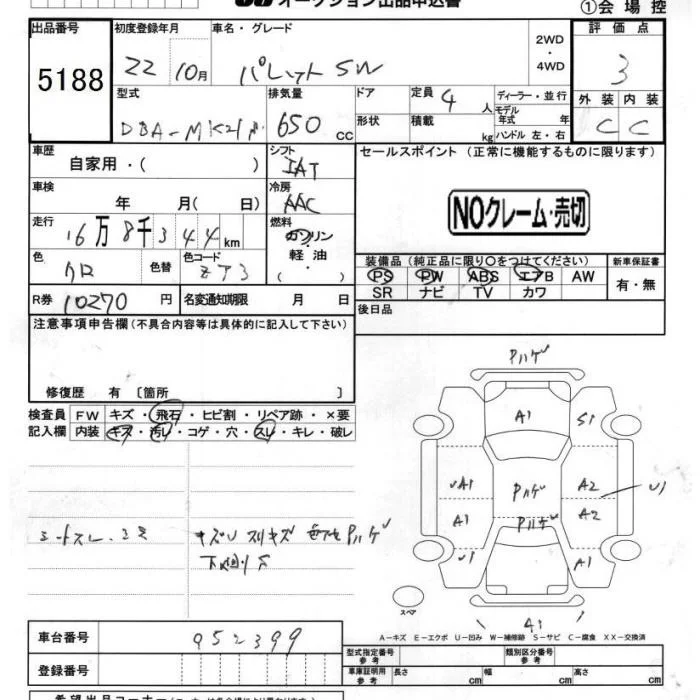 オークション出品申込書
①会場控
出品番号 初度登録年月 車名・グレード 評価点
5188 22 10月 パレット SW 2WD・4WD 3
型式 排気量 ドア 定員 4 人 ディーラー・並行 外装 内装
DBA-MK21 650 CC 形状 積載 kg モデル年式 年 ハンドル 左・右 C C
車歴 自家用・( ) シフト IAT セールスポイント (正常に機能するものに限ります)
車検 年 月( 日) 冷房 AAC
NOクレーム・売切
走行 16万8千344km 燃料 ガソリン 軽油 ・( )
色 クロ 色替 色コード ZA3
装備品 (純正品に限り○をつけてください) 新車保証書
PS PW ABS エアB AW 有・無
SR ナビ TV カワ
R券 10270 円 名変通知期限 月 日 後日品
注意事項申告欄(不具合内容等は具体的に記入して下さい)
修復歴 有 〔箇所 〕
検査員 FW キズ・飛石・ヒビ割・リペア跡・×要
記入欄 内装 キズ・汚レ・コゲ・穴・スレ・キレ・破レ
Pハゲ
A1 S1
A1 Pハゲ A2 U1
A1 Pハゲ A2
U1 A1
シートスレ. キズU スリキズ Pハゲ
下回り
スペア
A1
A－キズ E－エクボ U－凹み W－補修跡 S－サビ C－腐食 XX－交換済
車台番号 952399
登録番号
型式指定番号 参考 類別区分番号 参考
車庫証明用 参考 長さ cm 幅 cm 高さ cm
希望出品コーナー